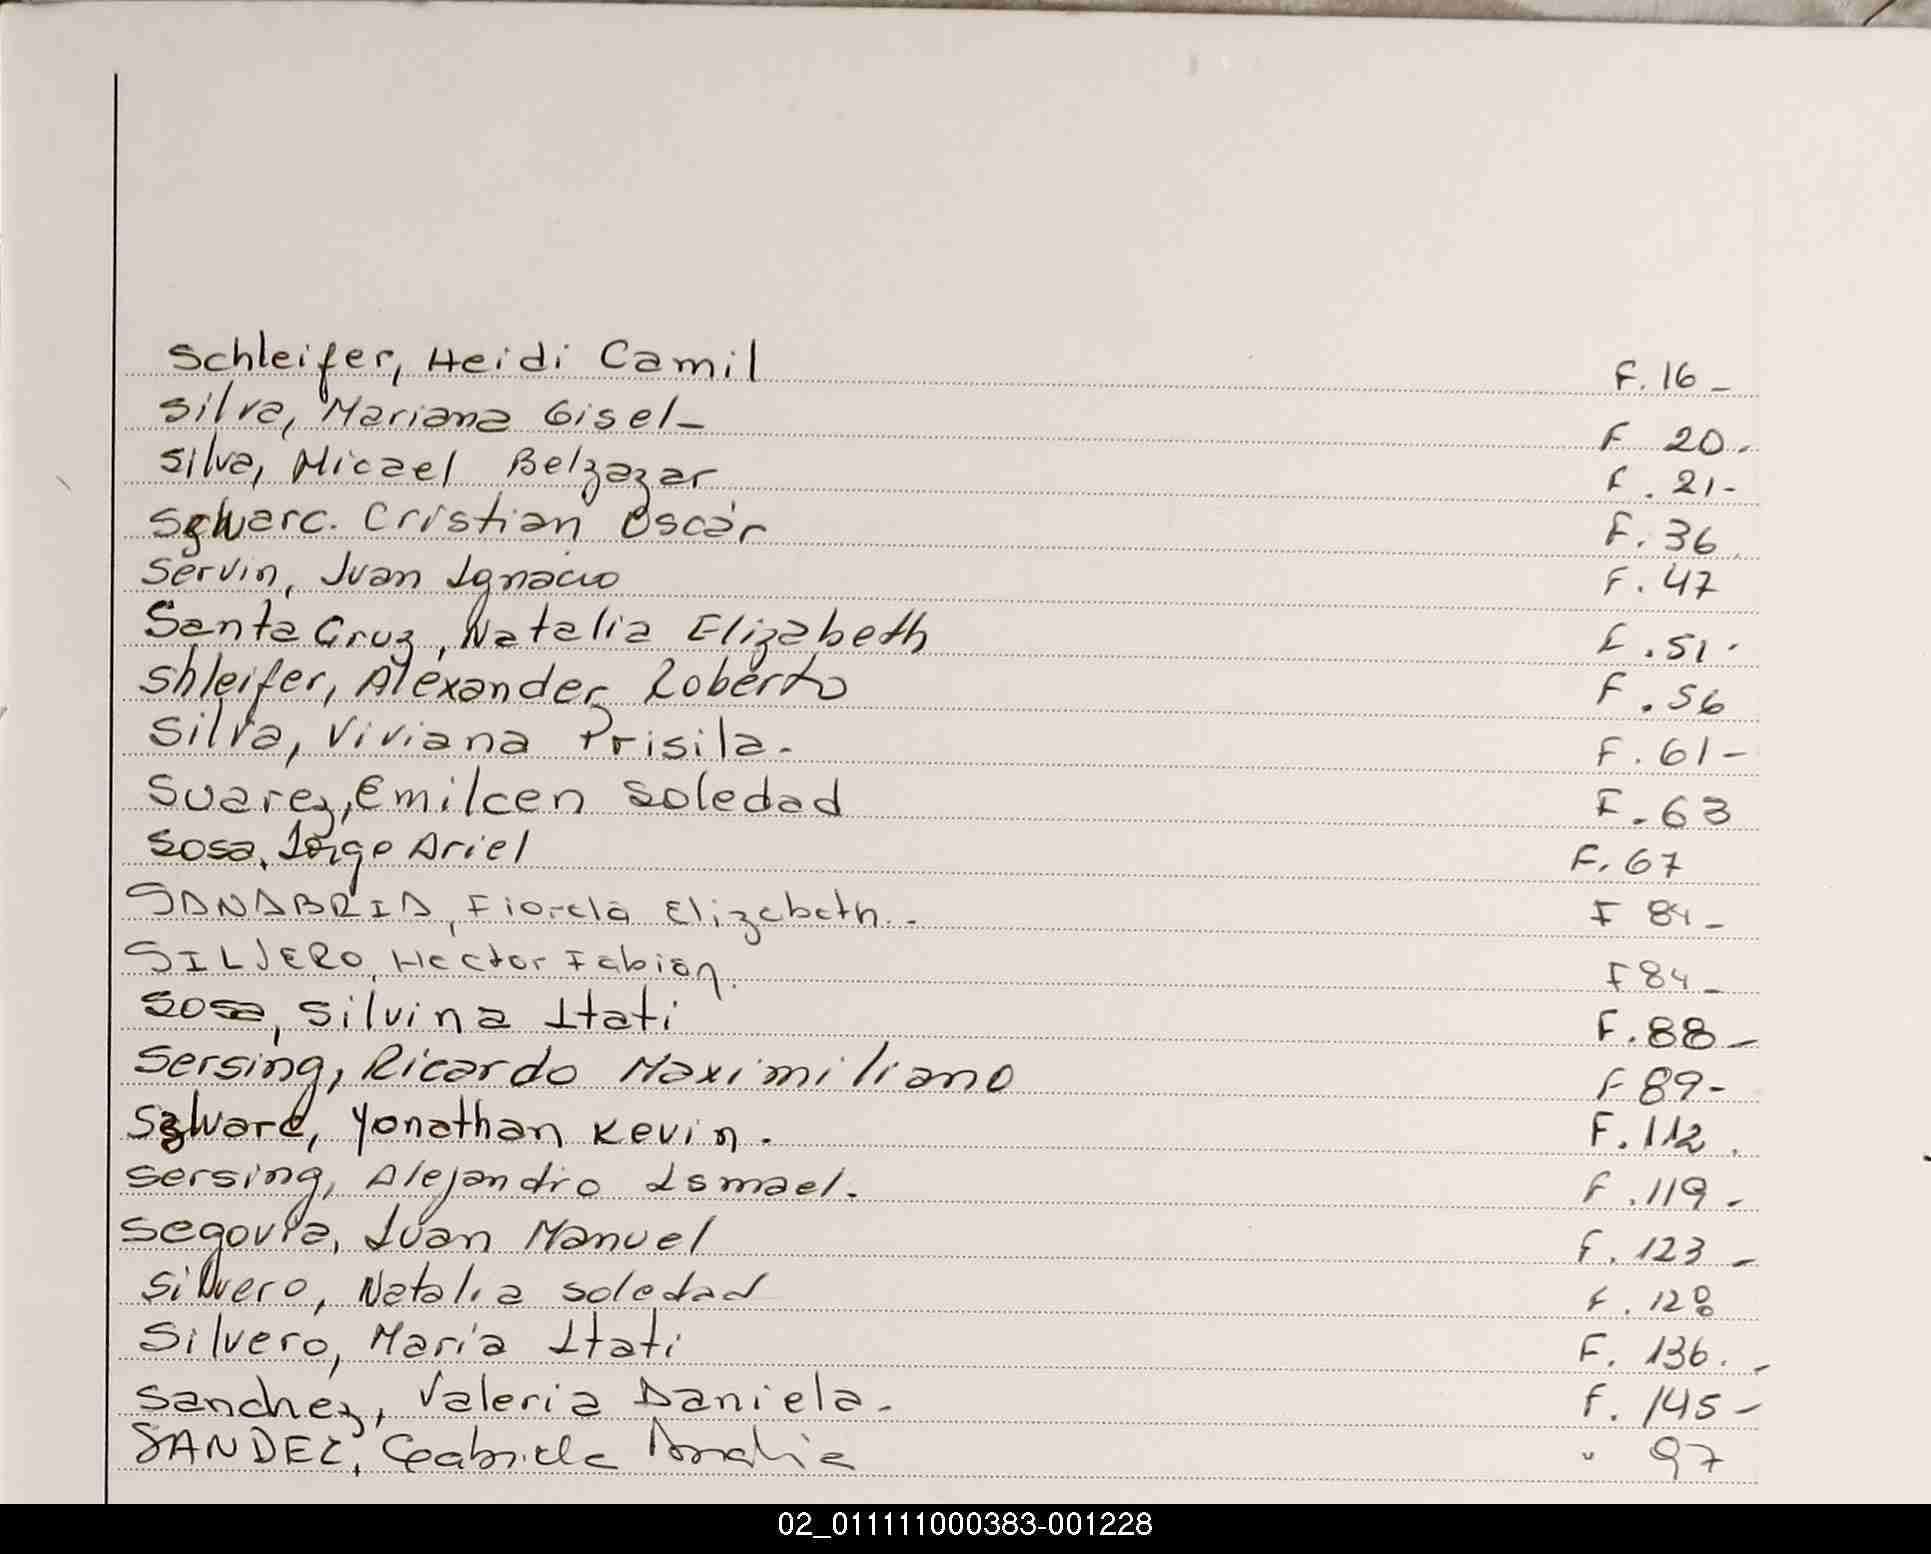 Schleifer, Heidi Camil F. 16 -
Silva, Mariana Gisel - F 20.
Silva, Micael Belzazar F. 21-
Szwarc. Cristian Oscar F. 36
Servin, Juan Ignacio F. 47
Santa Cruz, Natalia Elizabeth F. 51.
Shleifer, Alexander Roberto F. 56
Silva, Viviana Prisila. F. 61-
Suarez, Emilcen Soledad F. 63
Sosa, Jorge Ariel F. 67
SANABRIA, Fiorela Elizabeth.- F 84-
SILVERO, Hector Fabian. F 84-
Sosa, Silvina Itati F. 88-
Sersing, Ricardo Maximiliano F 89-
Szwarc, Yonathan Kevin. F. 112.
Sersing, Alejandro Ismael. F. 119-
Segovia, Juan Manuel F. 123-
Silvero, Natalia Soledad F. 128
Silvero, Maria Itati F. 136.-
Sanchez, Valeria Daniela. F. 145-
SANDEZ, Gabriela Analia " 97
02_011111000383-001228